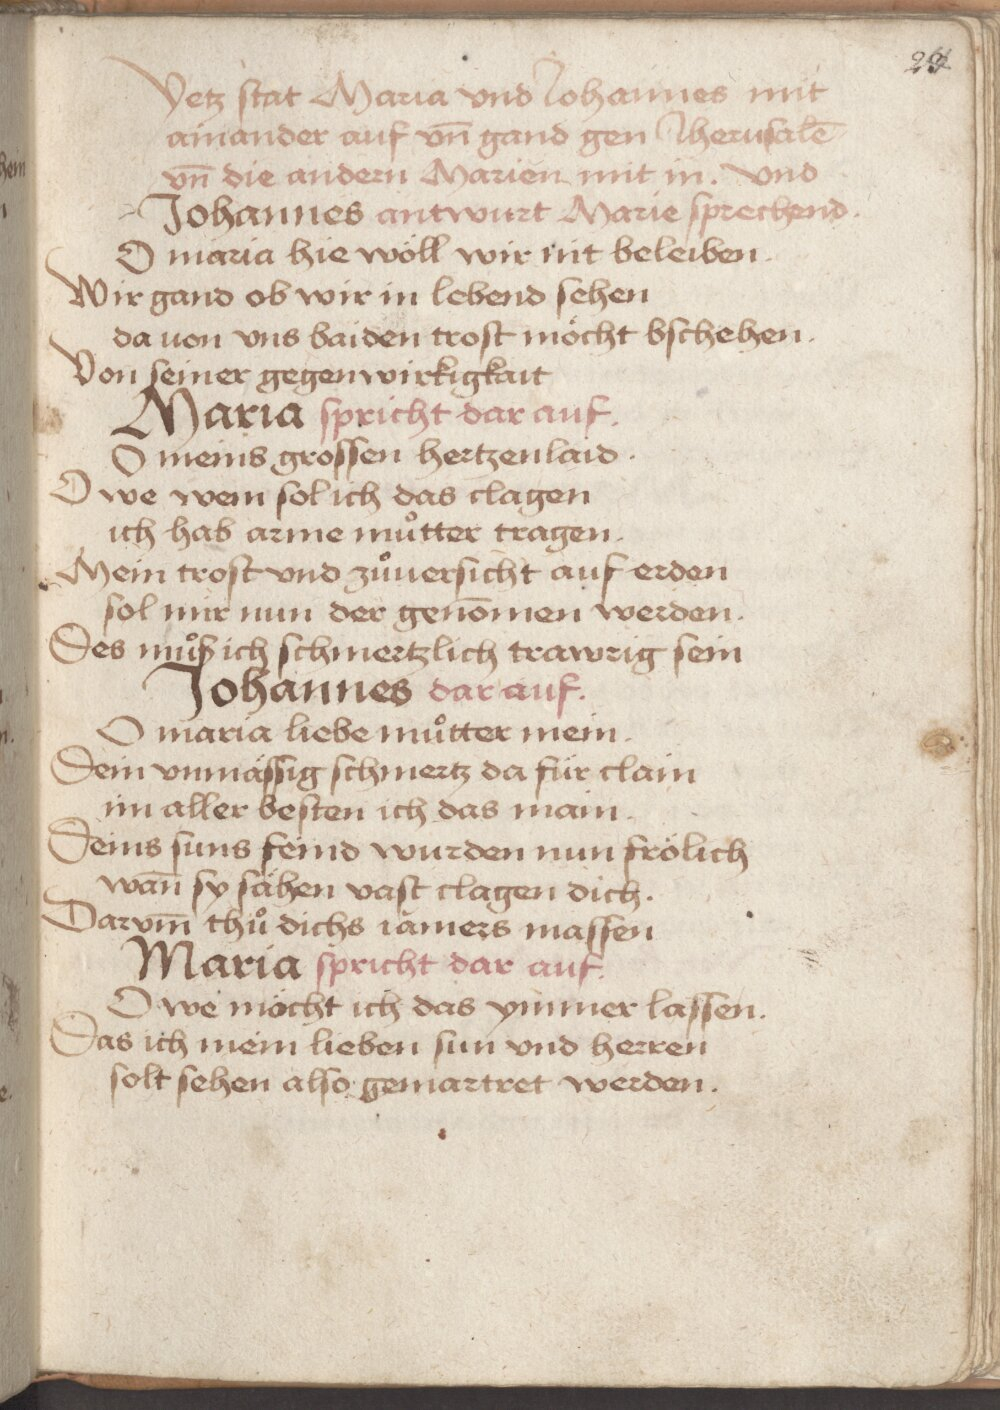 Yetz stat Maria vnd Johannes mit
ainander auf vn̄ gand gen Jherusalē
vn̄ die andern Marien mit in. vnd
Johannes antwurt Marie sprechend.
O maria hie wöll wir nit beleiben.
Wir gand ob wir in lebend sehen
da uon vns baiden trost möcht bschehen.
Von seiner gegenwirkigkait
Maria spricht dar auf.
O meins grossen hertzenlaid.
O we wem sol ich das clagen
ich hab arme můtter tragen.
Mein trost vnd zůuersicht auf erden
sol mir nun der genom̄en werden.
Des můß ich schmertzlich trawrig sein
Johannes dar auf.
O maria liebe můtter mein.
Dein vnmässig schmertz da für clain
im aller besten ich das main.
Deins suns feind wurden nun frölich
wan̄ sy sähen vast clagen dich.
Darvm̄ thů dichs iamers massen
Maria spricht dar auf.
O we möcht ich das ymmer lassen.
Das ich mein lieben sun vnd herren
solt sehen also gemartret werden.